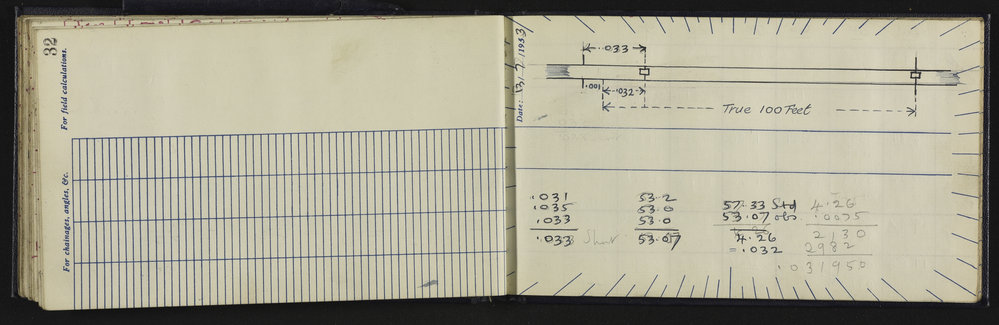 32
For field calculations.
For chainages, angles, &c.
Date: 31.7.1953
.033
.001
.032
True 100 Feet
.031
.035
.033
.033 Short
53.2
53.0
53.0
53.07
57.33 Std
53.07 obs
4.26
= .032
4.26
.0075
2130
2982
.031950